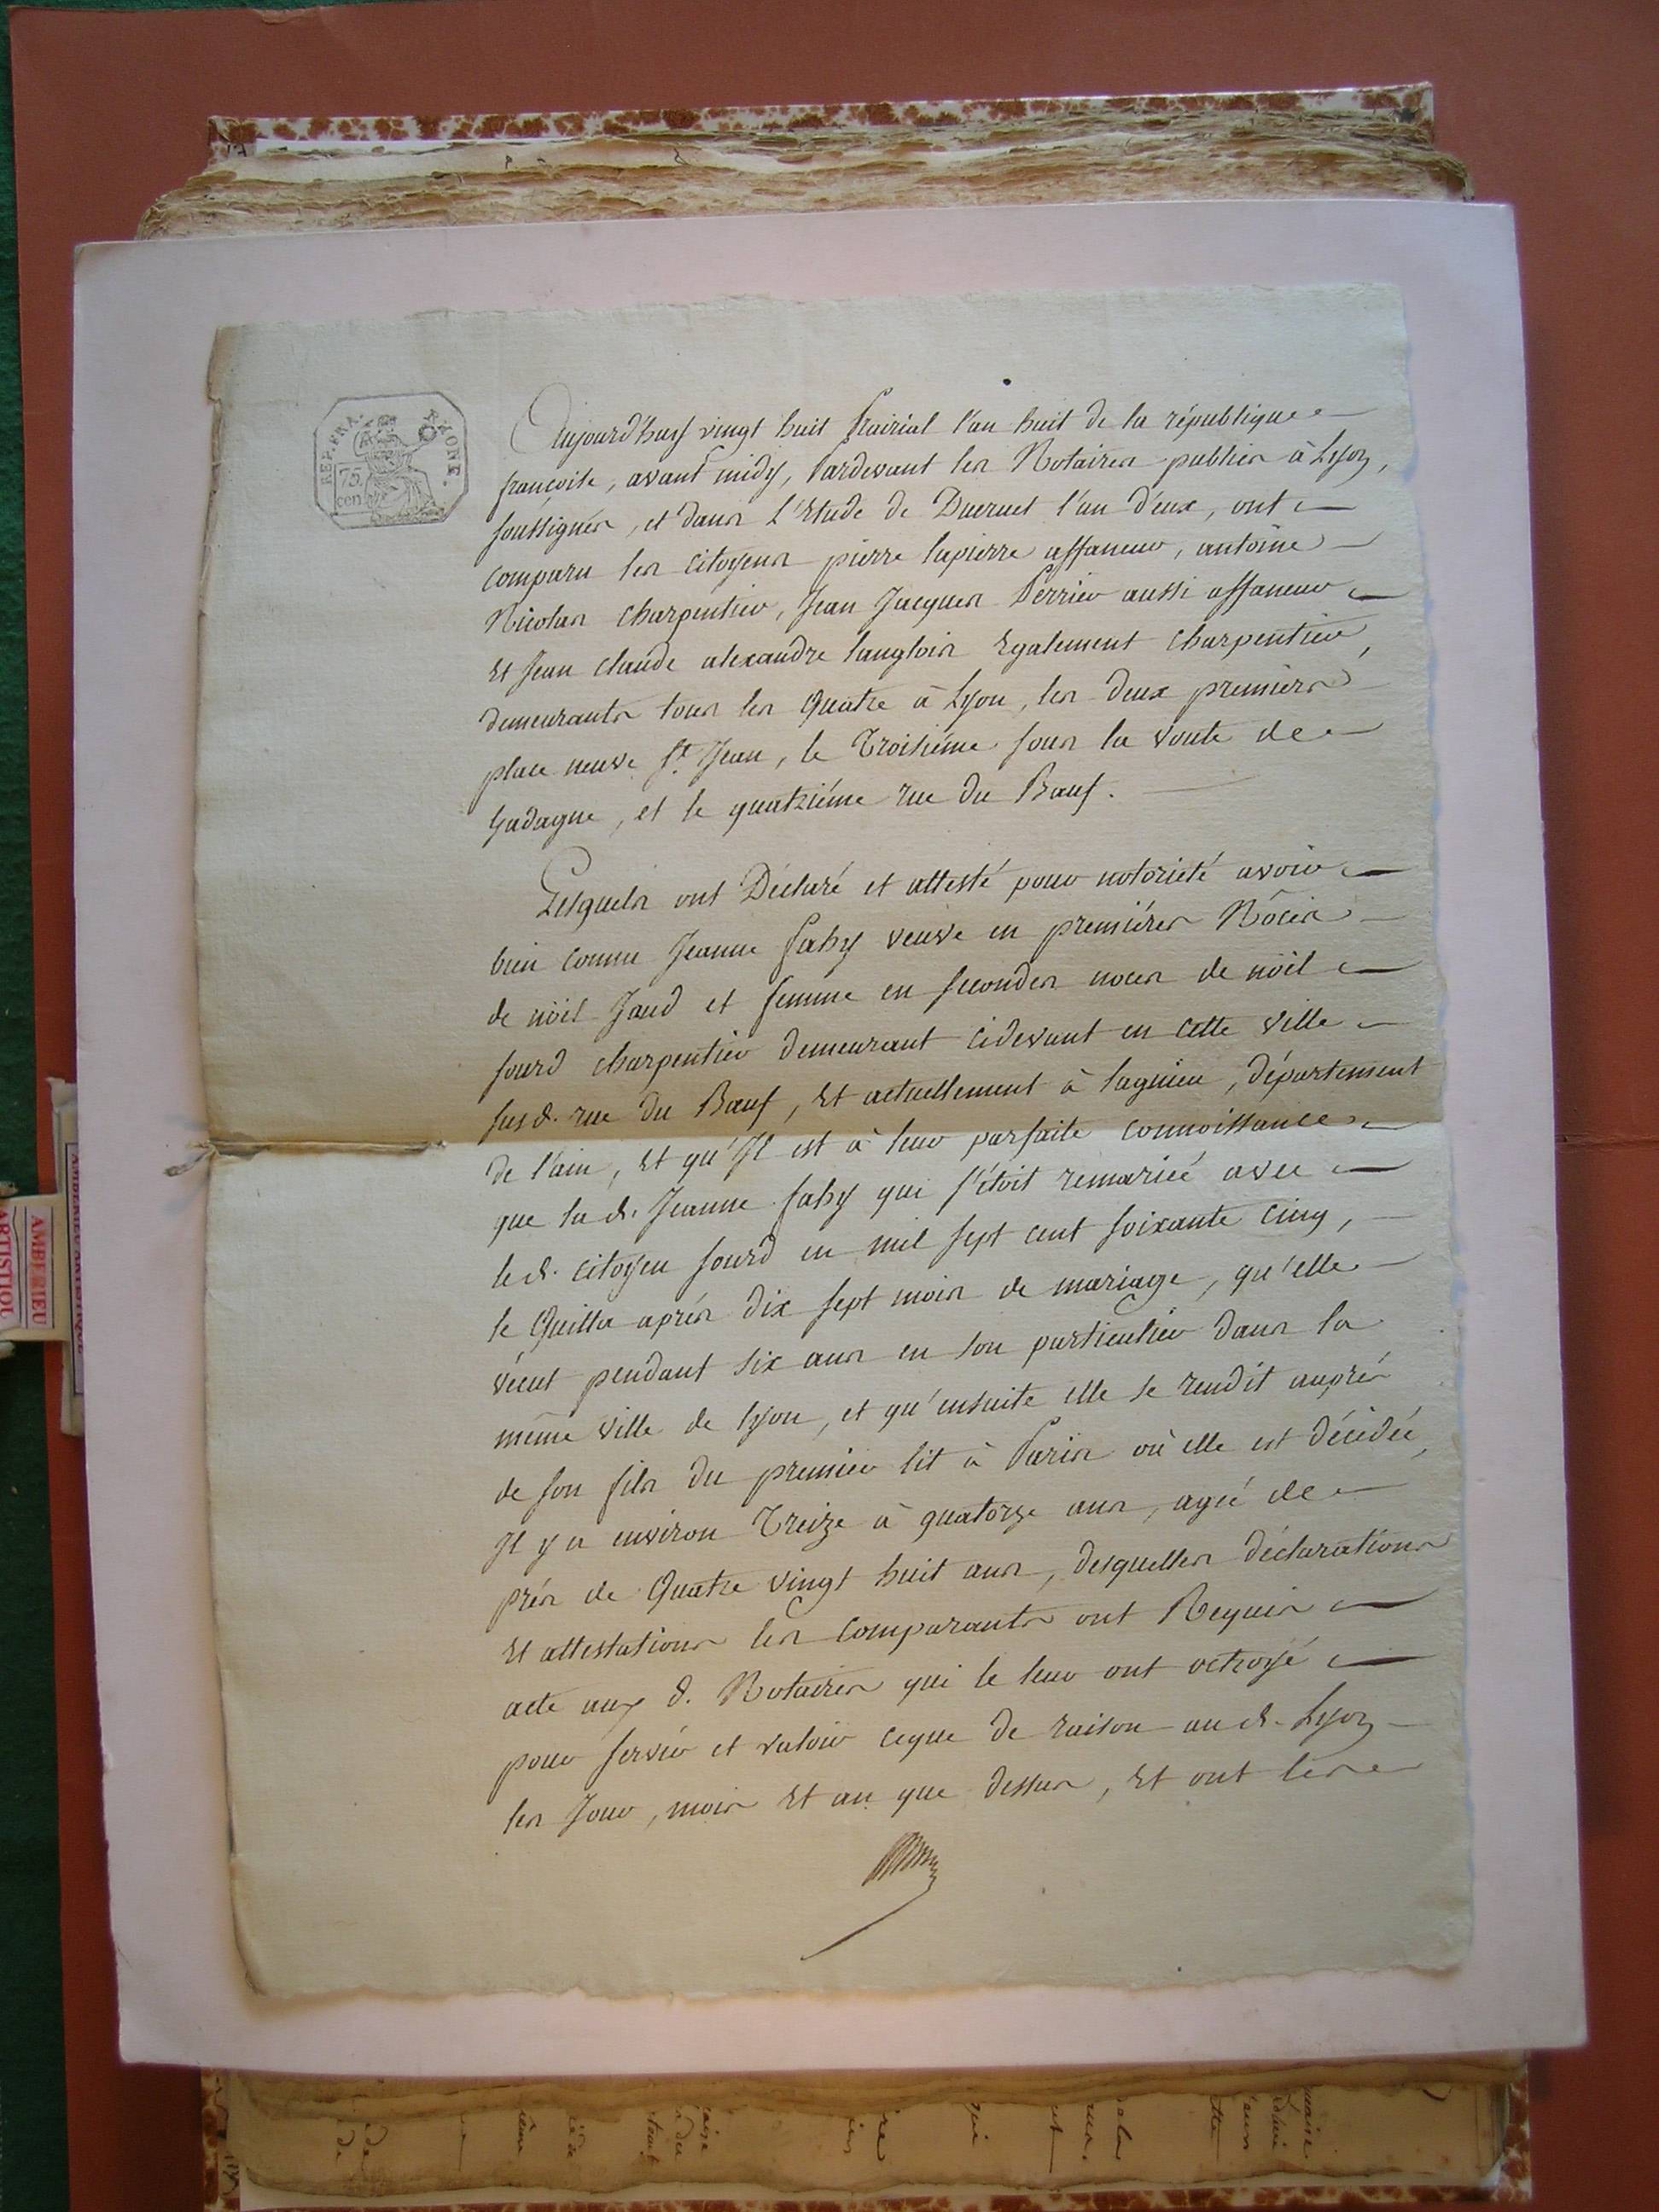 REP. FRA.
RHONE.
75.
cen.
Aujourd'huy vingt huit Prairial l'an huit de la république
françoise, avant midy, Pardevant les Notaires publics à Lyon,
soussignés, et dans L'Etude de Ducruet l'un d'eux, ont
comparu les citoyens pierre lapierre affaneur, antoine
Nicolas charpentier, Jean Jacques Perrier aussi affaneur
Et Jean claude alexandre langlois Egalement charpentier,
demeurants tous les Quatre à Lyon, les deux premiers
place neuve St. Jean, le Troisiéme sous la voute de
Gadagne, et le quatriéme rue du Bœuf.
Lesquels ont Déclaré et attesté pour notoriété avoir
bien connu Jeanne fahy veuve en premiéres Nôces
de nöel Jaud et femme en secondes noces de nöel
sourd charpentier demeurant cidevant en cette ville
susd. rue du Bœuf, Et actuellement à lagnieu, département
de l'ain, Et qu'Il est à leur parfaite connoissance
que la d. Jeanne fahy qui s'étoit remariée avec
le d. citoyen sourd en mil sept cent soixante cinq,
le Quitta aprés dix sept mois de mariage, qu'elle
vécut pendant six ans en son particulier dans la
même ville de lyon, et qu'ensuite elle se rendit auprés
de son fils du premier lit à Paris où elle est décédée,
Il y a environ Treize à quatorze ans, agée de
prés de Quatre vingt huit ans, desquelles déclarations
Et attestations les comparants ont Requis
acte aux d. Notaires qui le leur ont octroyé
pour servir et valoir ceque de raison au d. Lyon
les Jour, mois Et an que dessus, Et ont les
AMBERIEU
ARTISTIQU